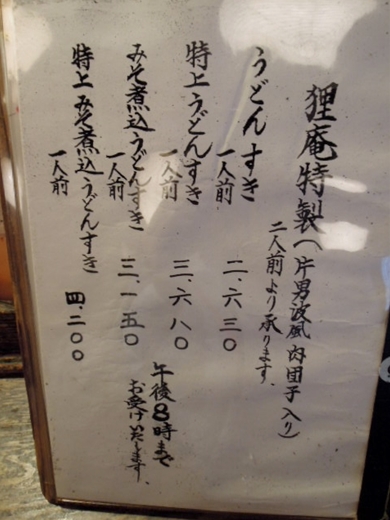 狸庵特製(片男波風肉団子入り)
二人前より承ります。
うどんすき
一人前 二、六三〇
特上うどんすき
一人前 三、六八〇
みそ煮込うどんすき
一人前 三、一五〇
特上みそ煮込うどんすき
一人前 四、二〇〇
午後8時まで
お受けいたします。